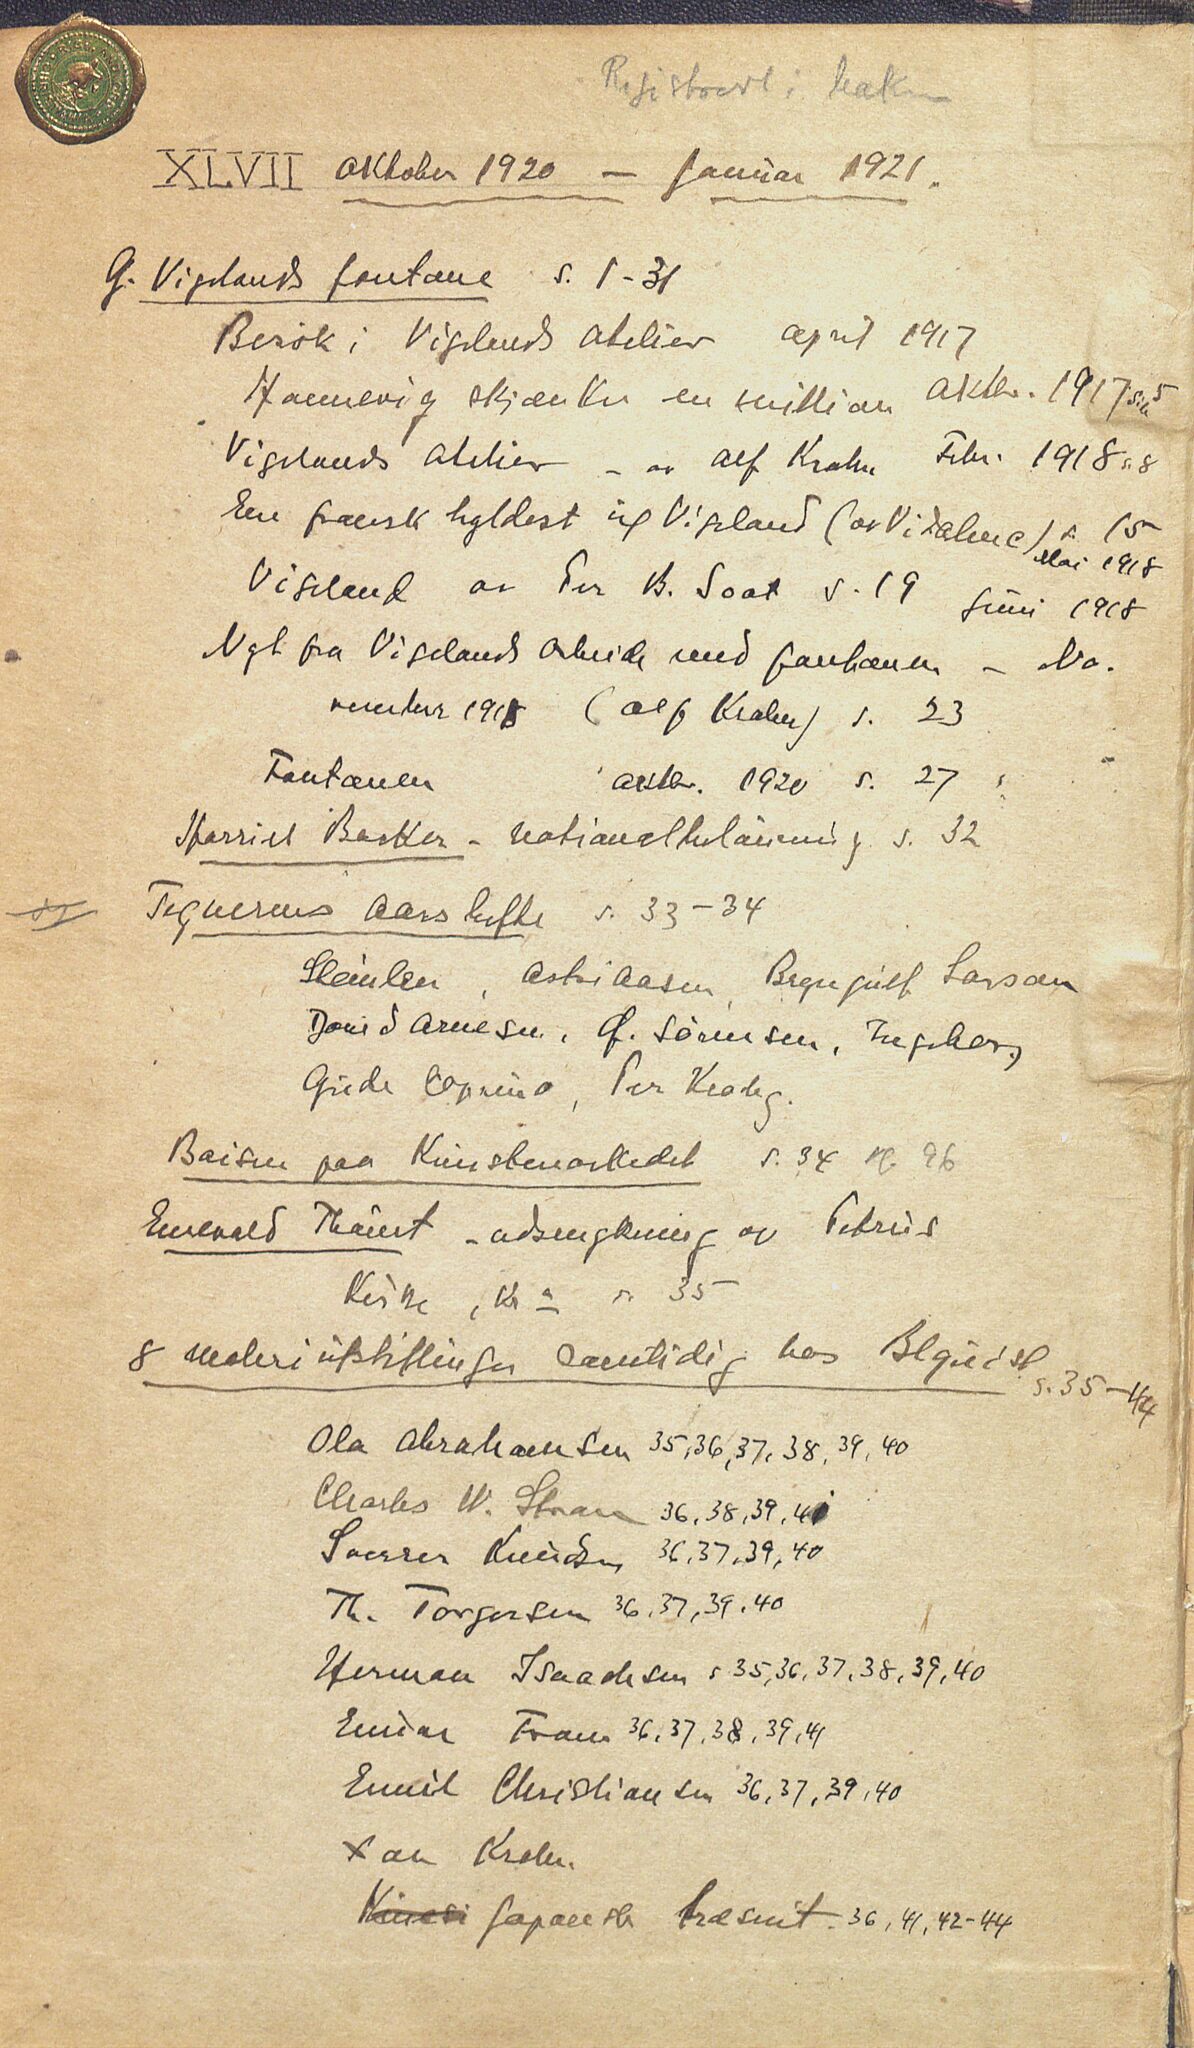 Registrert i
XLVII Oktober 1920 — Januar 1921.
G. Vigelands fontæne s. 1-31
Besøk i Vigelands atelier april 1917
Hannevig skjænker en million Oktbr. 1917 side 5
Vigelands atelier - av Alf Krohn Febr. 1918 s. 8
En fransk hyldest til Vigeland (av Vidalenc) s. 15
Mai 1918
Vigeland av Per B. Soot s. 19 Juni 1918
Nyt fra Vigelands arbeide med fontænen - No-
vember 1918 (Alf Krohn) s. 23
Fontænen oktbr. 1920 s. 27
Harriet Backer - Nationalbelønning s. 32
Tegnernes Aarshefte s. 33-34
Steinlen, Astri Aasen, Brynjulf Larsson
David Arnesen, J. Sørensen, Ingeborg
Gude Caprino, Per Krohg.
Baisen paa Kunstmarkedet s. 34 og 96
Emerald Thaüst - utsmykning av Petrus
Kirke, Kr a s. 35
8 maleriutstillinger samtidig hos Blqvist
s. 35-44
Ola Abrahamsen 35, 36, 37, 38, 39, 40
Charles W. Stran 36, 38, 39, 41
Sverre Knudsen 36, 37, 39, 40
Th. Torgersen 36, 37, 39, 40
Herman Isaachsen s 35, 36, 37, 38, 39, 40
Einar Fram 36, 37, 38, 39, 41
Emil Christiansen 36, 37, 39, 40
Xan Krohn.
Kinesi Japansk træsnit 36, 41, 42-44